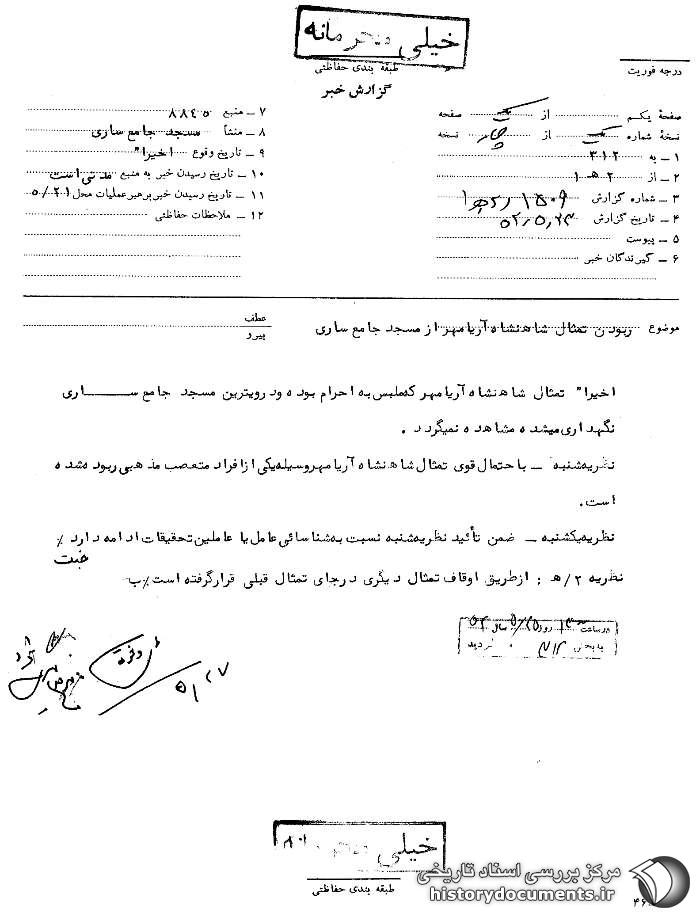 خیلی محرمانه
طبقه بندی حفاظتی
گزارش خبر
درجه فوریت
صفحهٔ یکم از یک صفحه
نسخهٔ شماره یک از چهار نسخه
۱ – به ۳۱۲
۲ – از ۲ هـ ۱
۳ – شماره گزارش ۱۵۰۹ / ۲هـ۱
۴ – تاریخ گزارش ۵۲٫۵٫۲۳
۵ – پیوست
۶ – گیرندگان خبر
۷ – منبع ۸۸۴۵
۸ – منشأ مسجد جامع ساری
۹ – تاریخ وقوع اخیرا"
۱۰ – تاریخ رسیدن خبر به منبع مدتی است
۱۱ – تاریخ رسیدن خبر برهبر عملیات محل ۵/۲۱
۱۲ – ملاحظات حفاظتی
موضوع ربودن تمثال شاهنشاه آریامهر از مسجد جامع ساری
عطف
پیرو
اخیرا" تمثال شاهنشاه آریامهر که ملبس به احرام بوده و در ویترین مسجد جامع ســـاری
نگهداری میشده مشاهده نمیگردد .
نظریه شنبه – با احتمال قوی تمثال شاهنشاه آریامهر وسیله یکی از افراد متعصب مذهبی ربوده شده
است.
نظریه یکشنبه – ضمن تأئید نظریه شنبه نسبت به شناسائی عامل یا عاملین تحقیقات ادامه دارد٪
نظریه ۲/هـ : از طریق اوقاف تمثال دیگری در جای تمثال قبلی قرار گرفته است٪ب
در ساعت ۱۳ روز ۵/۲۵ سال ۵۲
به بخش ۳۱۲ گردید
۵/۲۷
خیلی محرمانه
طبقه بندی حفاظتی
مرکز بررسی اسناد تاریخی
historydocuments.ir